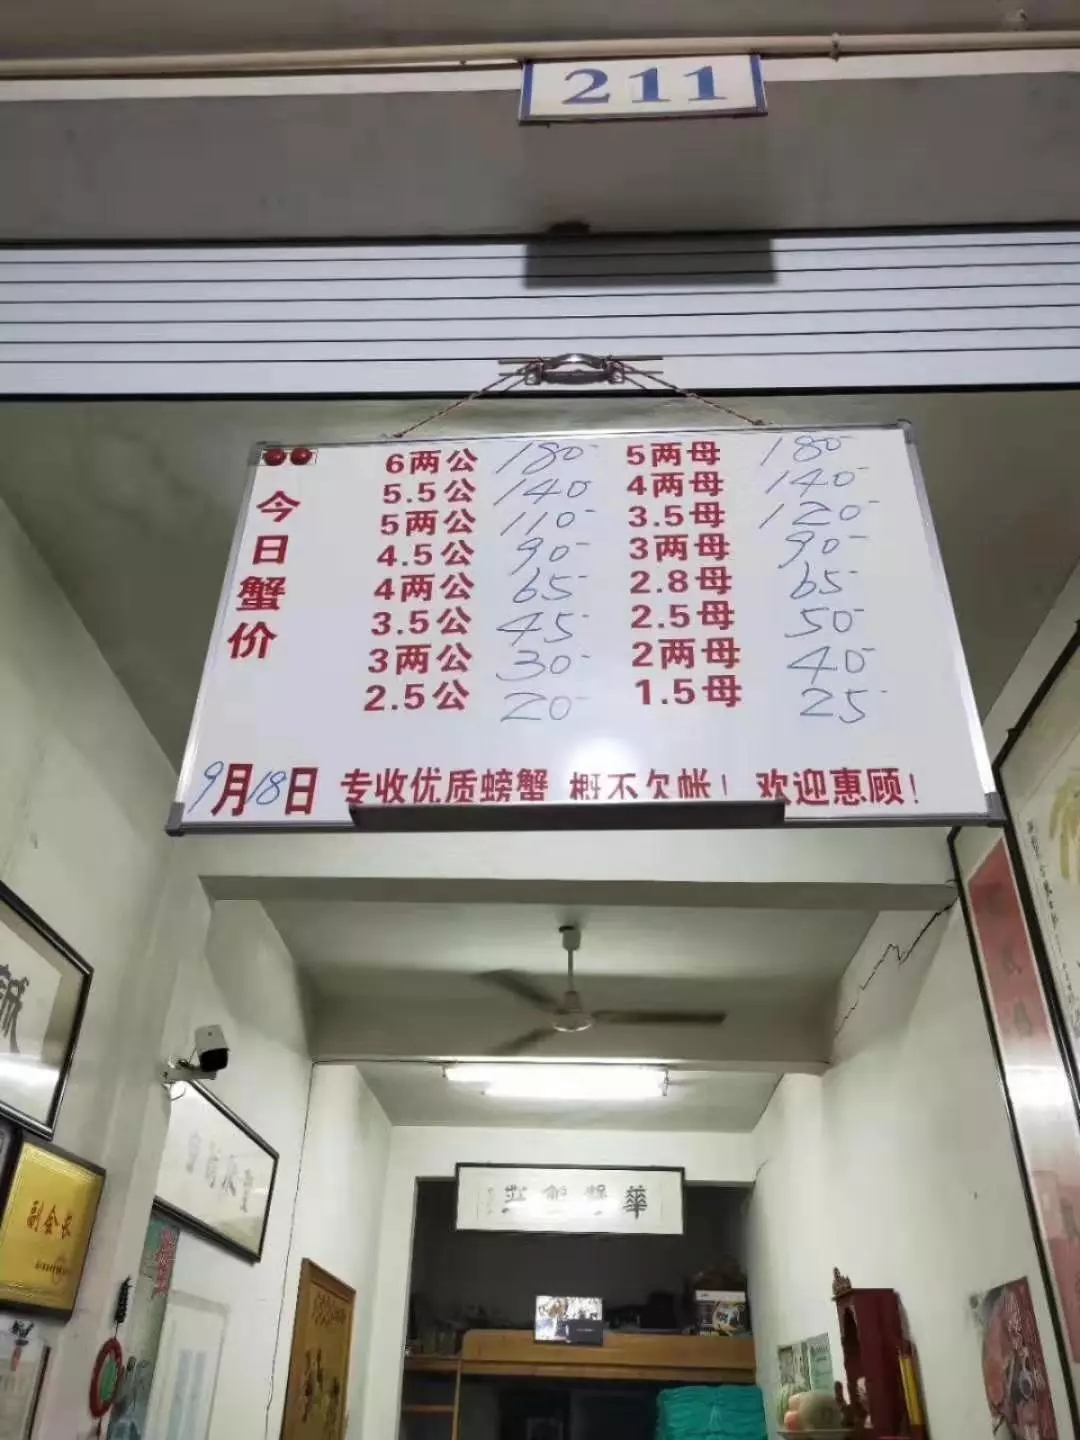 211
今日蟹价
6两公 180 5两母 180
5.5公 140 4两母 140
5两公 110 3.5母 120
4.5公 90 3两母 90
4两公 65 2.8母 65
3.5公 45 2.5母 50
3两公 30 2两母 40
2.5公 20 1.5母 25
9月18日 专收优质螃蟹 概不欠帐！欢迎惠顾！
誠
副会长